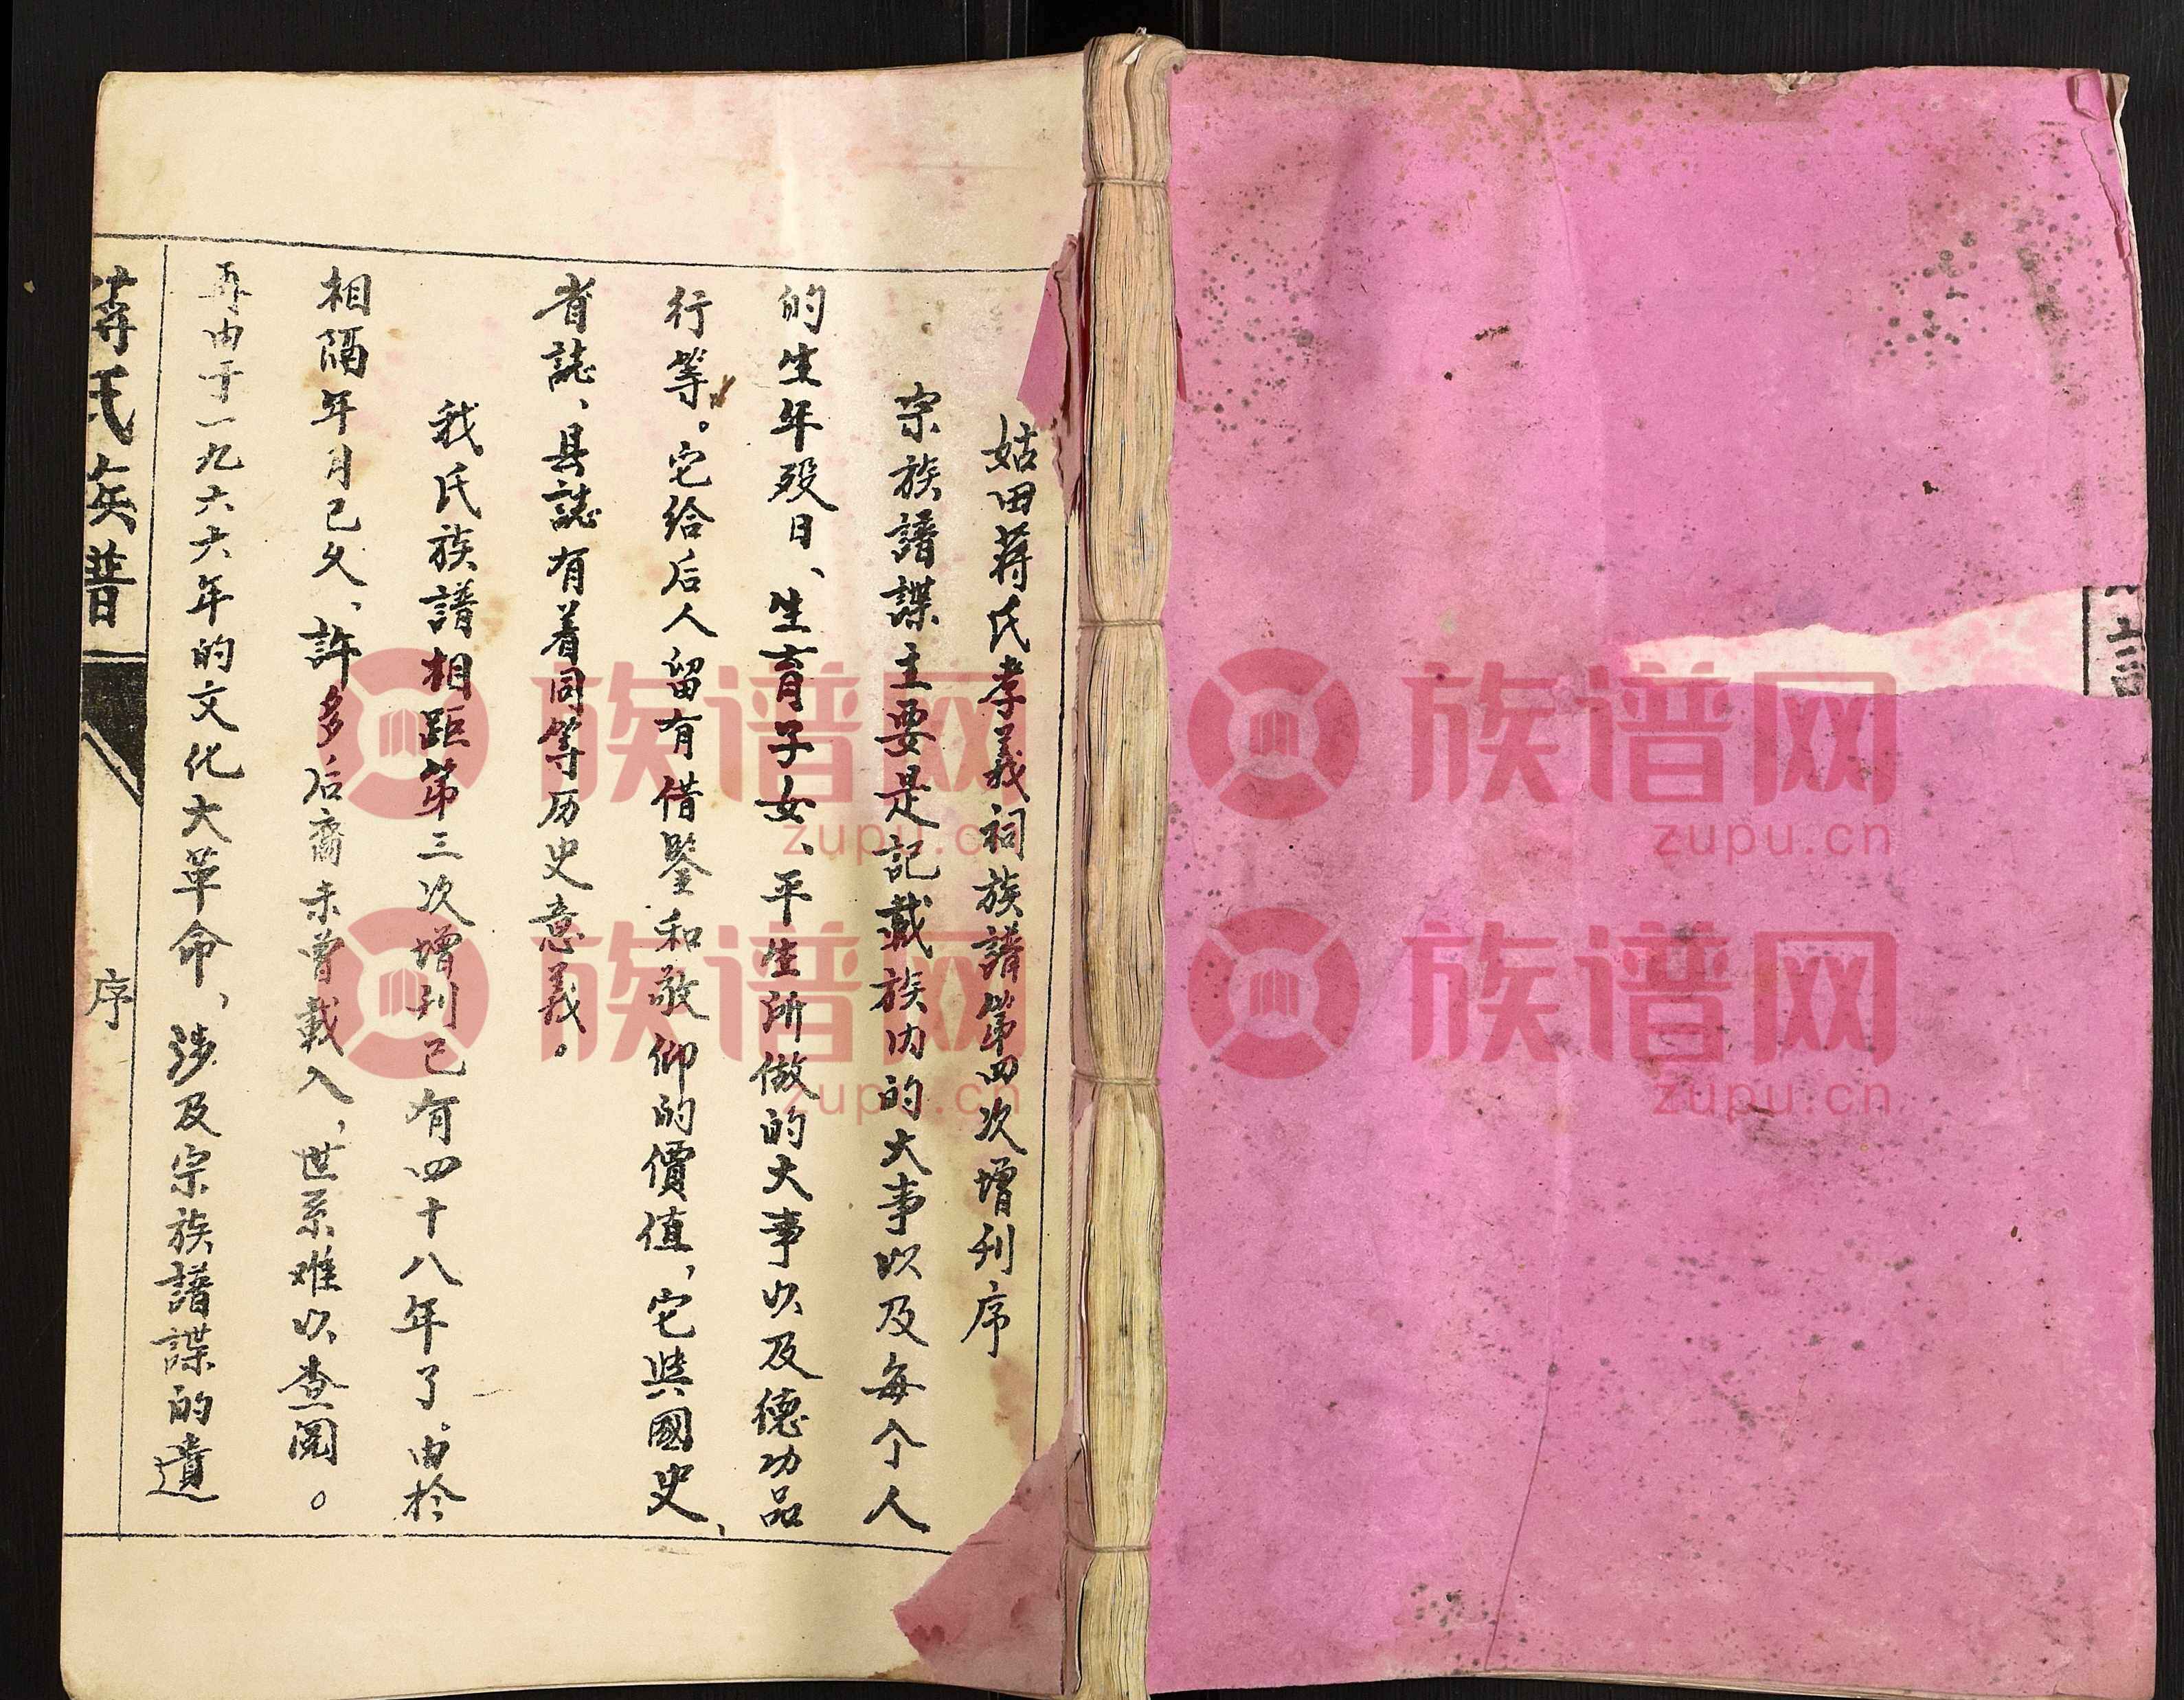 姑田蒋氏孝義祠族譜第四次增刊序
宗族譜諜主要是記載族内的大事以及每个人
的生年殁日、生育子女、平生所做的大事以及德功品
行等。它给后人留有借鑒和敬仰的價值,它與國史、
省誌、县誌有着同等历史意義。
我氏族譜相距第三次增刊已有四十八年了。由於
相隔年月已久、許多后裔未曾載入,世系难以查阅。
再由于一九六六年的文化大革命,涉及宗族譜諜的遺
蒋氏族普
序
族谱网
zupu.cn
族谱网
zupu.cn
族谱网
zupu.cn
族谱网
zupu.cn